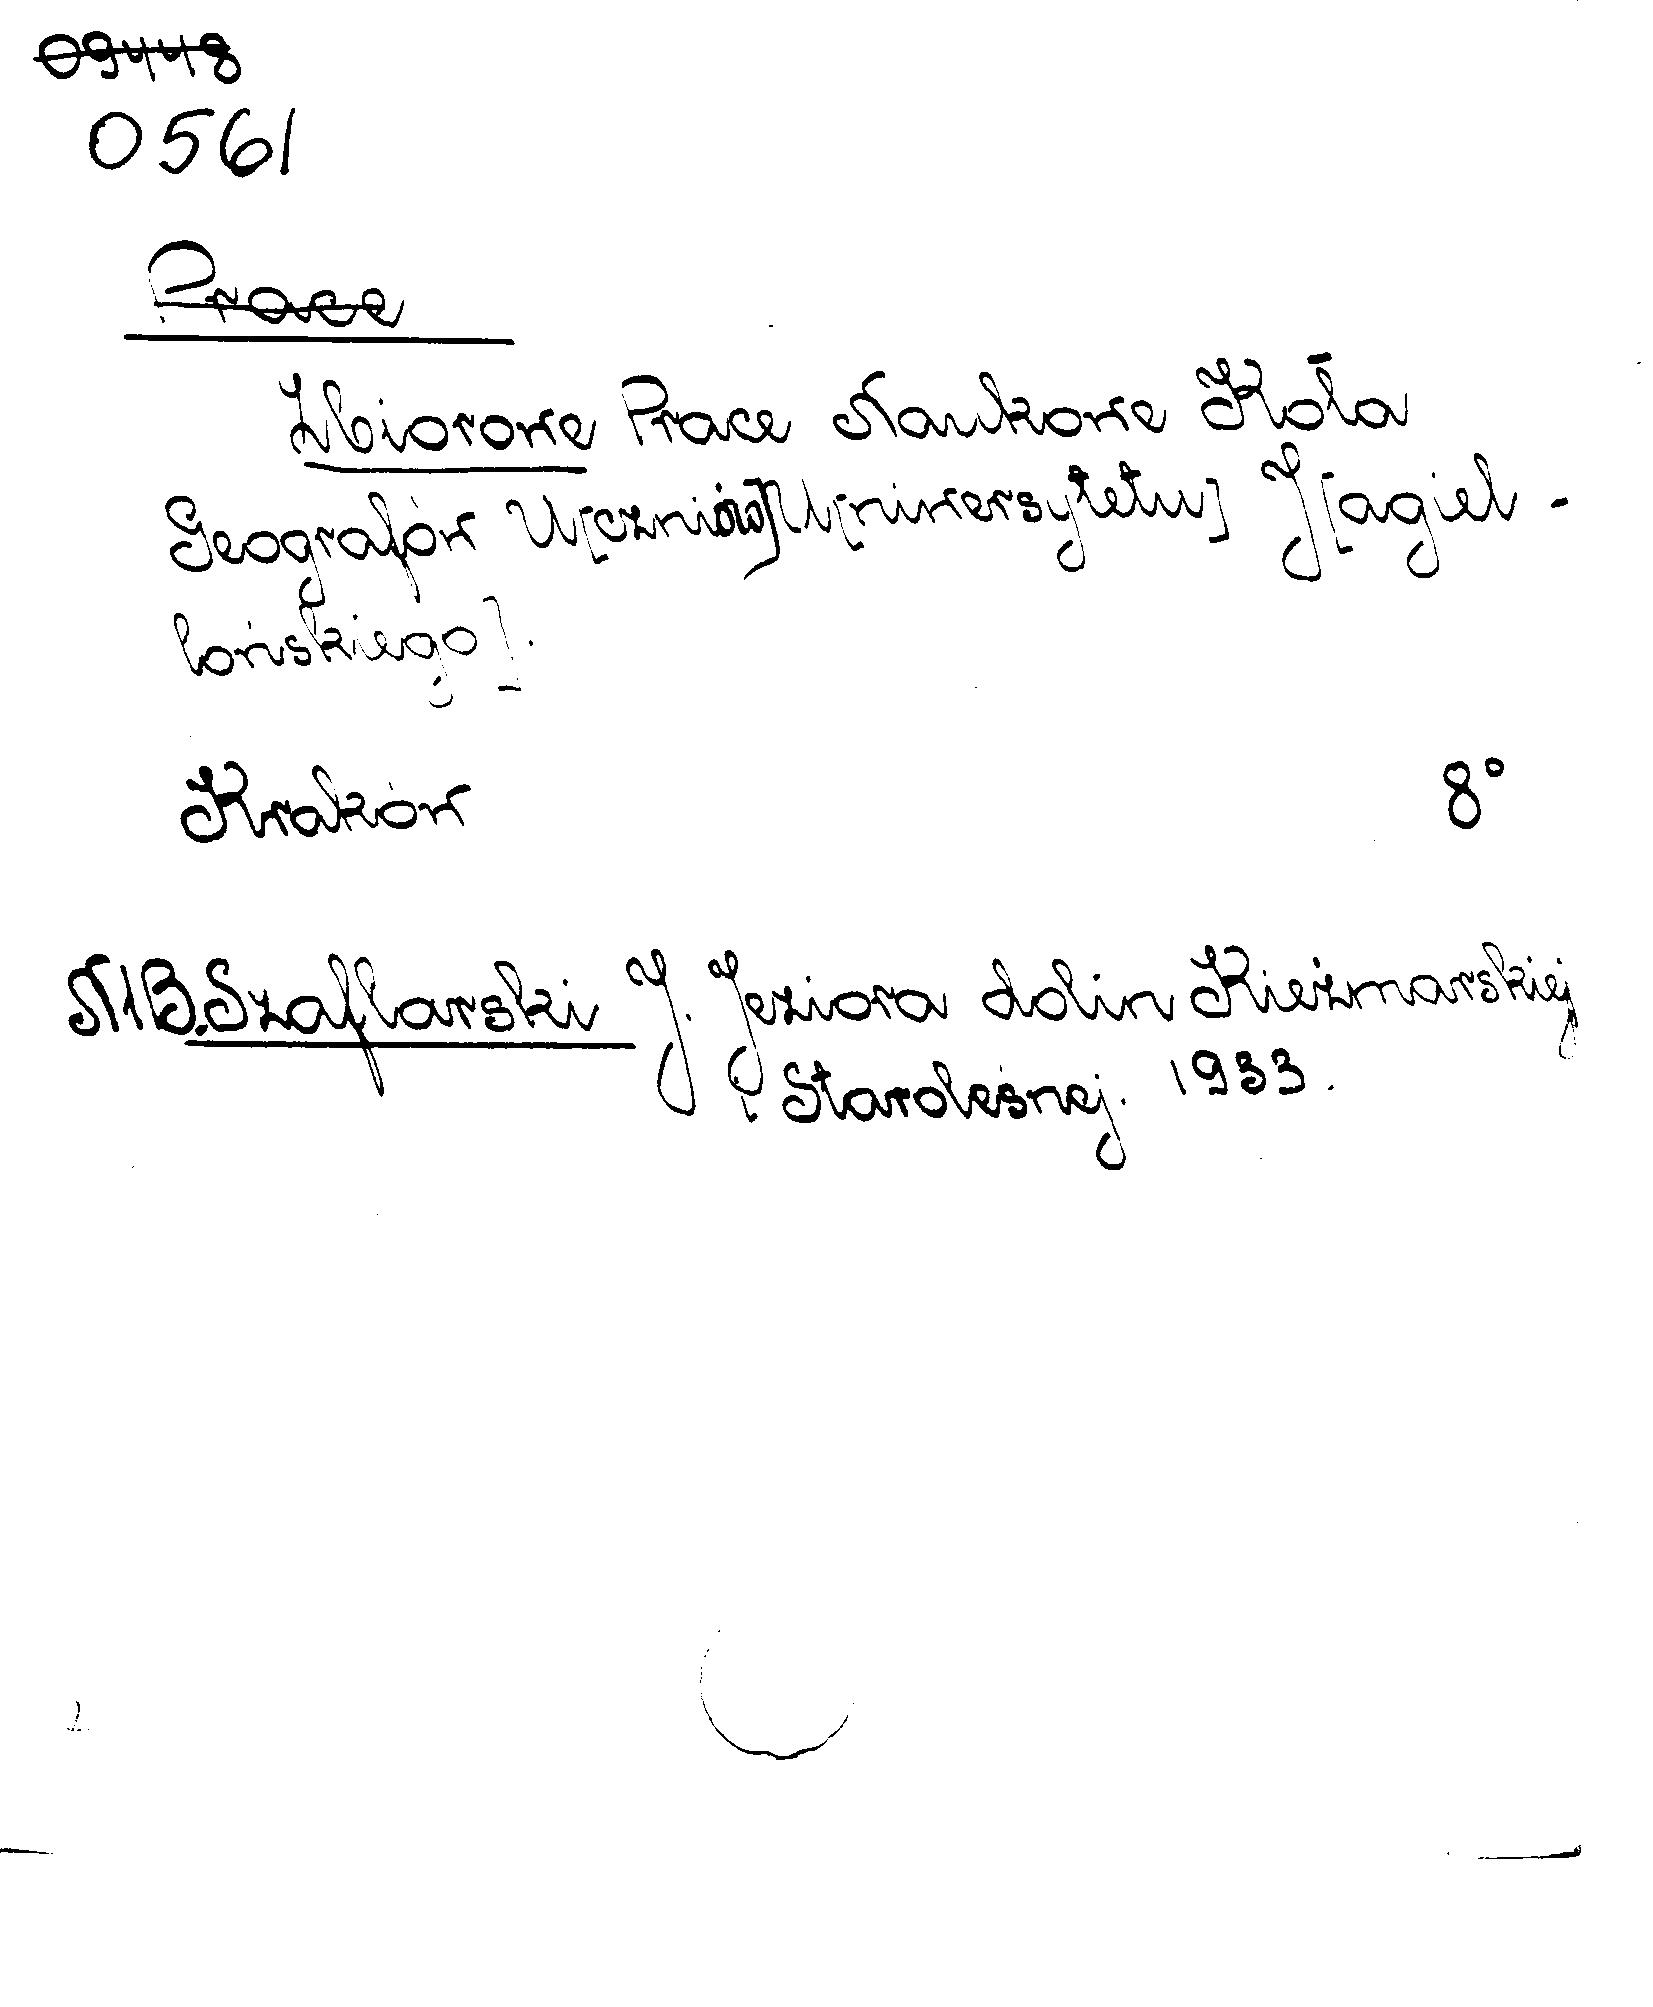 09448
0561
Prace
Zbiorowe Prace Naukowe Koła
Geografów U[czniów] U[niwersytetu] J[agiel-
lońskiego].
Kraków 8°
NB. Szaflarski J. Jeziora dolin Kieżmarskiej
i Staroleśnej. 1933.